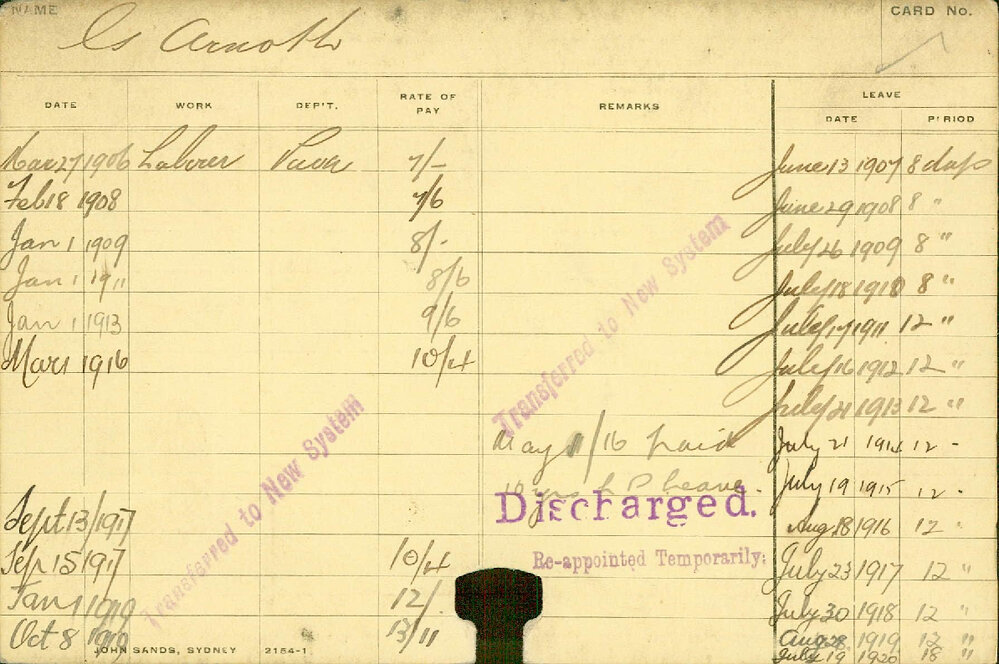 NAME CARD No.
Arnoth
LEAVE
DATE WORK DEP'T. RATE OF PAY REMARKS DATE PERIOD
Mar 27 1906 Laborer 7/- June 13 1907 8 days
Feb 18 1908 7/6 June 29 1908 8 "
Jan 1 1909 8/- July 26 1909 8 "
Jan 1 1911 8/6 July 18 1910 8 "
Jan 1 1913 9/6 July 17 1911 12 "
Mar 1 1916 10/4 July 16 1912 12 "
Transferred to New System
July 21 1913 12 "
May 11/16 paid July 21 1914 12 -
10 yrs L S Leave. July 19 1915 12 -
Transferred to New System
Sept 13/1917 Discharged. Aug 18 1916 12 "
Sep 15 1917 10/4 Re-appointed Temporarily. July 23 1917 12 "
Jan 1 1919 12/. July 30 1918 12 "
Oct 8 1919 13/11 Aug 28 1919 12 "
July 19 1920 18 "
JOHN SANDS, SYDNEY 2154-1